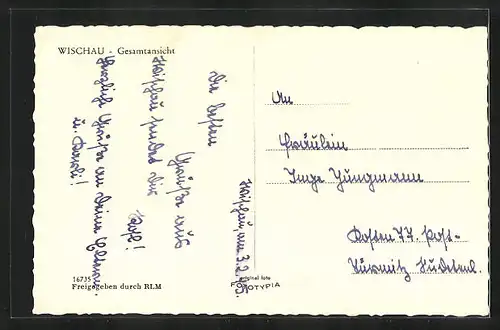 WISCHAU - Gesamtansicht
Die besten
Grüße aus
Wischau sendet Dir
Rolf!
Herzliche Grüße an Deine Eltern
u.
Wischau, am 3.2.45.
An
Fräulein
Inge Jungmann
Kosten 77. Post-
Türmitz Sudetenl.
16735
Freigegeben durch RLM
original foto
FOTOTYPIA